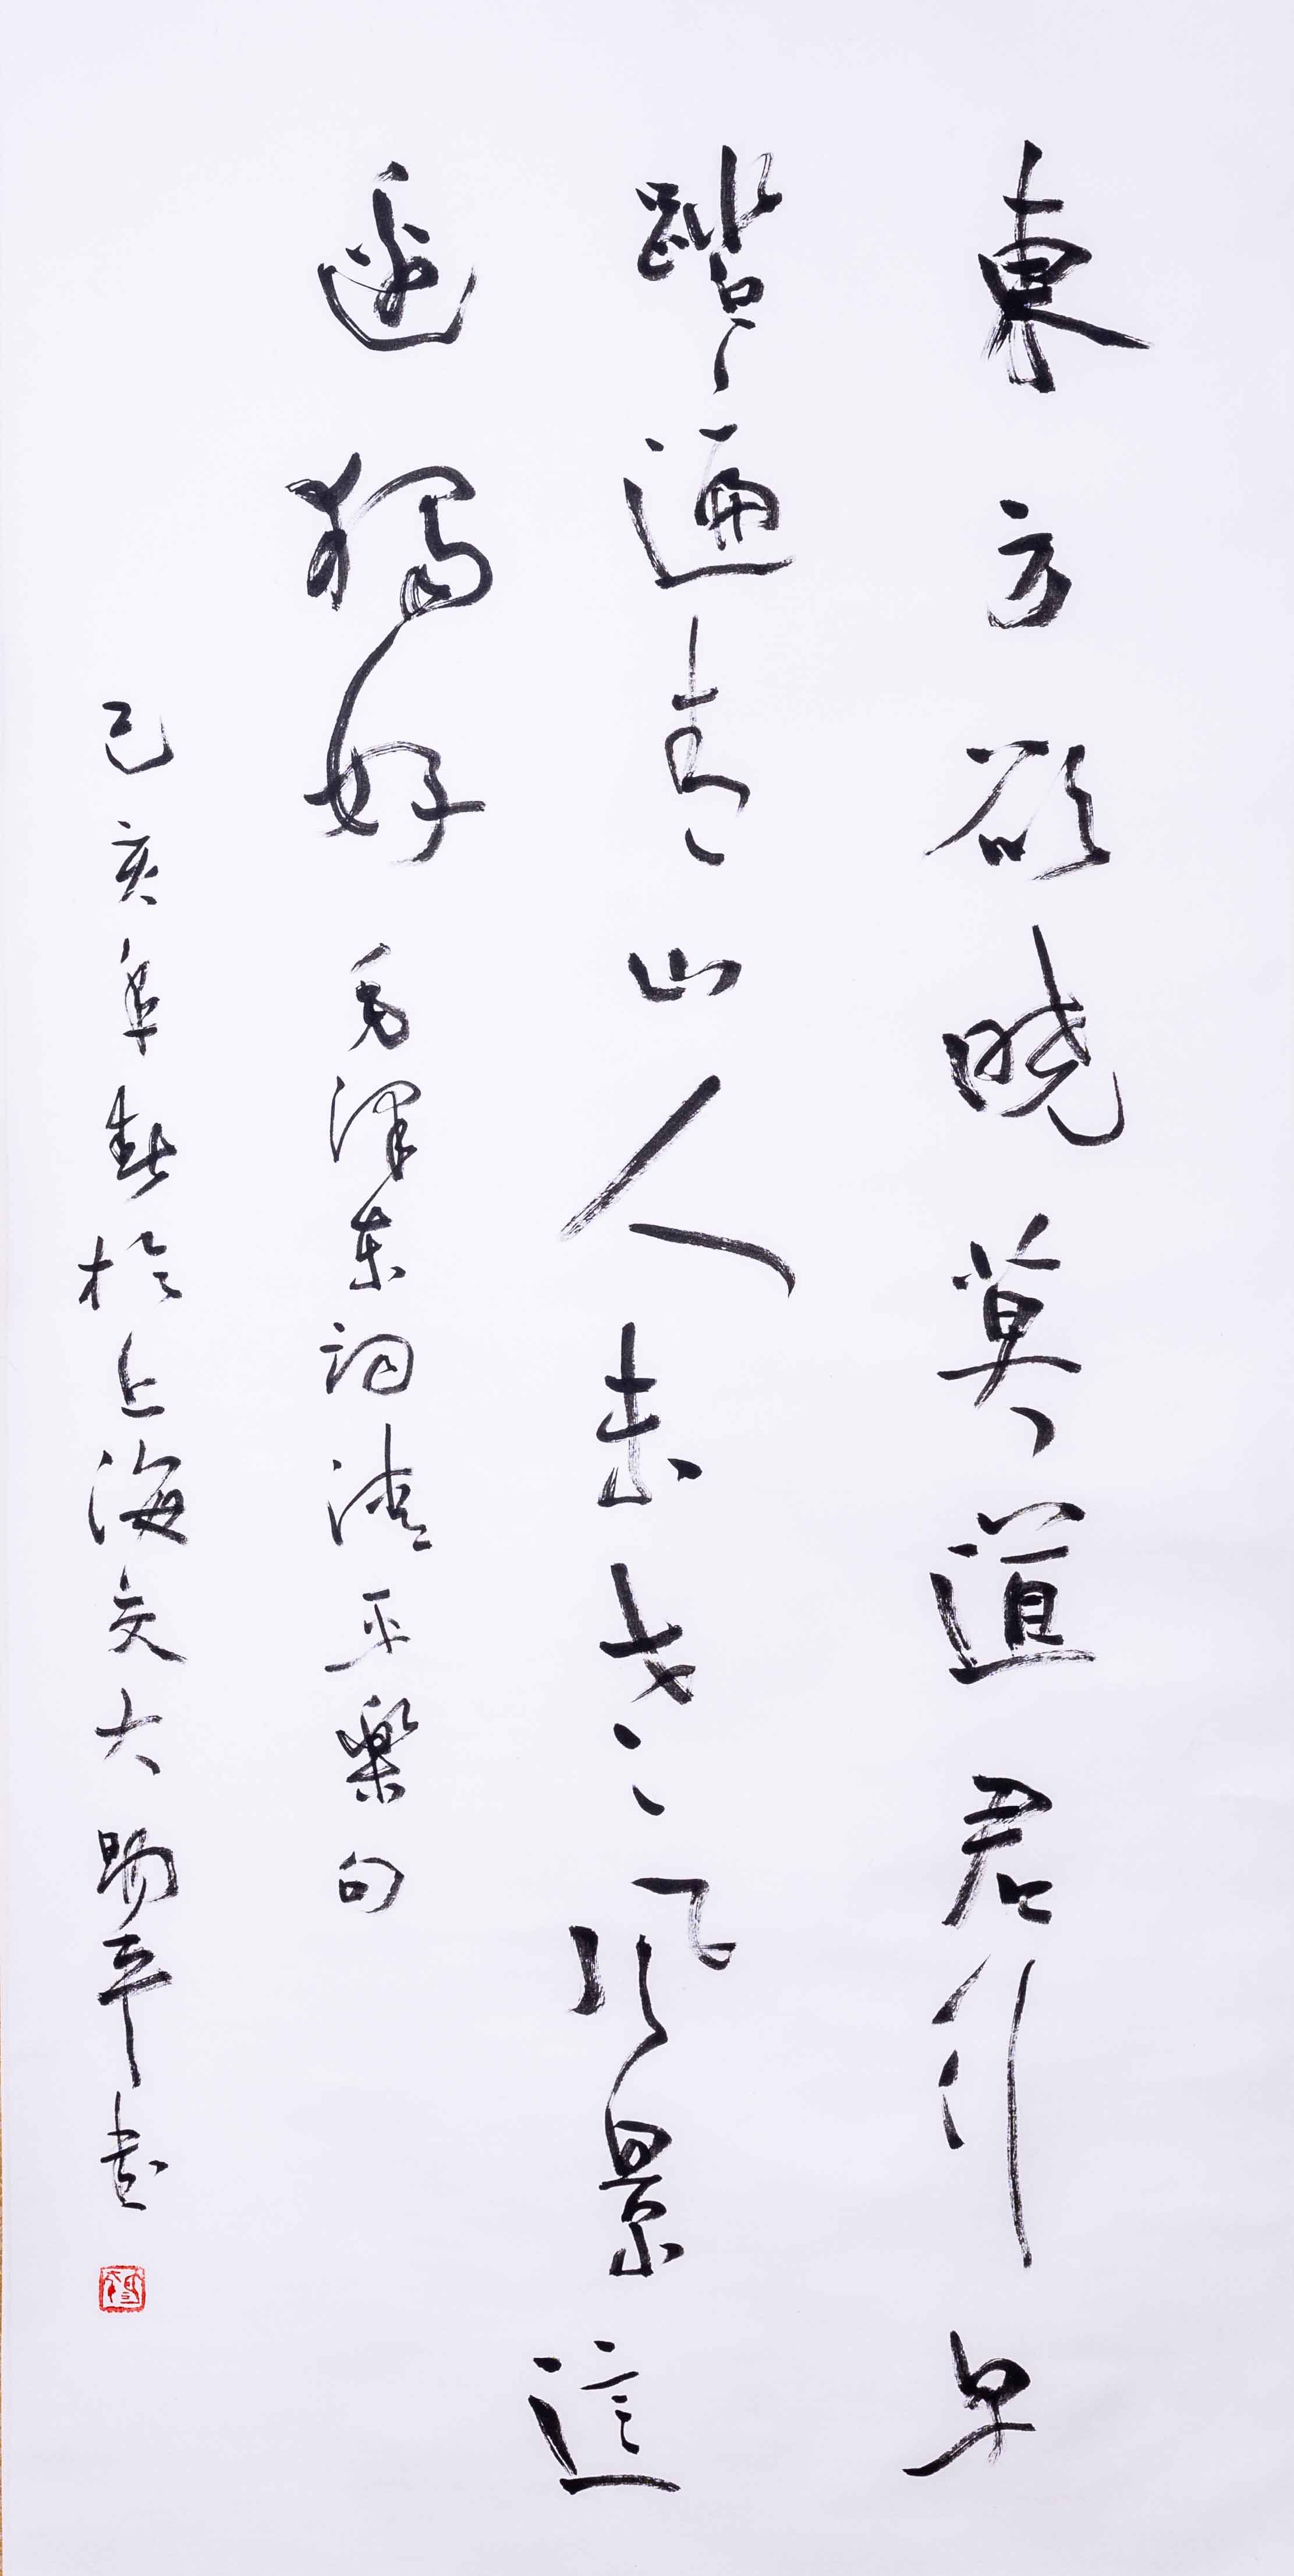 東方欲曉莫道君行早
踏遍青山人未老風景這
邊獨好 毛澤东詞清平樂句
己亥年於上海交大平書